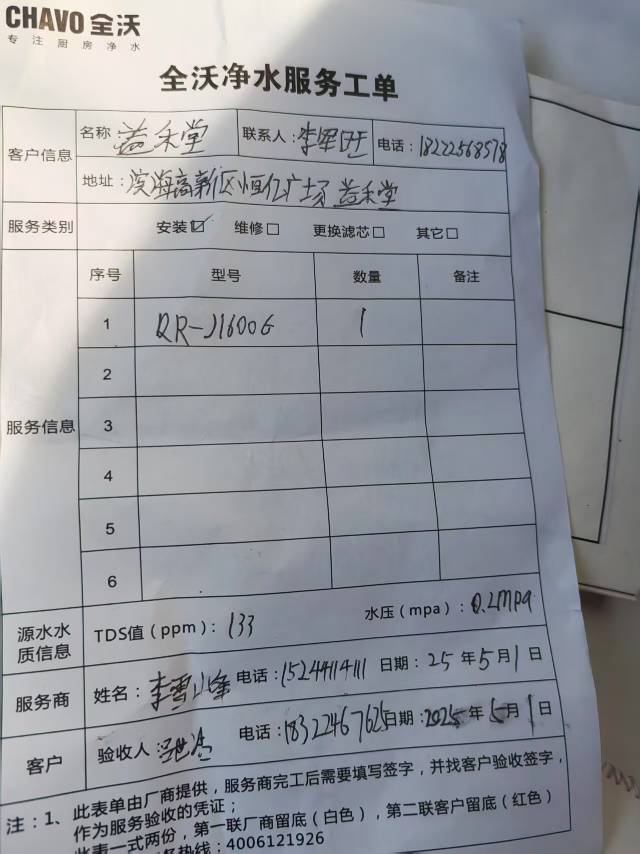 CHAVO 全沃
专注厨房净水
全沃净水服务工单
客户信息
名称 益禾堂 联系人：李军旺 电话：18222568578
地址：滨海高新区恒亿广场 益禾堂
服务类别 安装☑ 维修□ 更换滤芯□ 其它□
服务信息
序号 型号 数量 备注
1 QR-J1600G 1
2
3
4
5
6
源水水质信息 TDS值（ppm）：133 水压（mpa）：0.2MPa
服务商 姓名：李雪峰 电话：15244114111 日期：25年5月1日
客户 验收人： 电话：18322467625 日期：2025年5月1日
注：1、此表单由厂商提供，服务商完工后需要填写签字，并找客户验收签字，
作为服务验收的凭证；
此表一式两份，第一联厂商留底（白色），第二联客户留底（红色）
务热线：4006121926